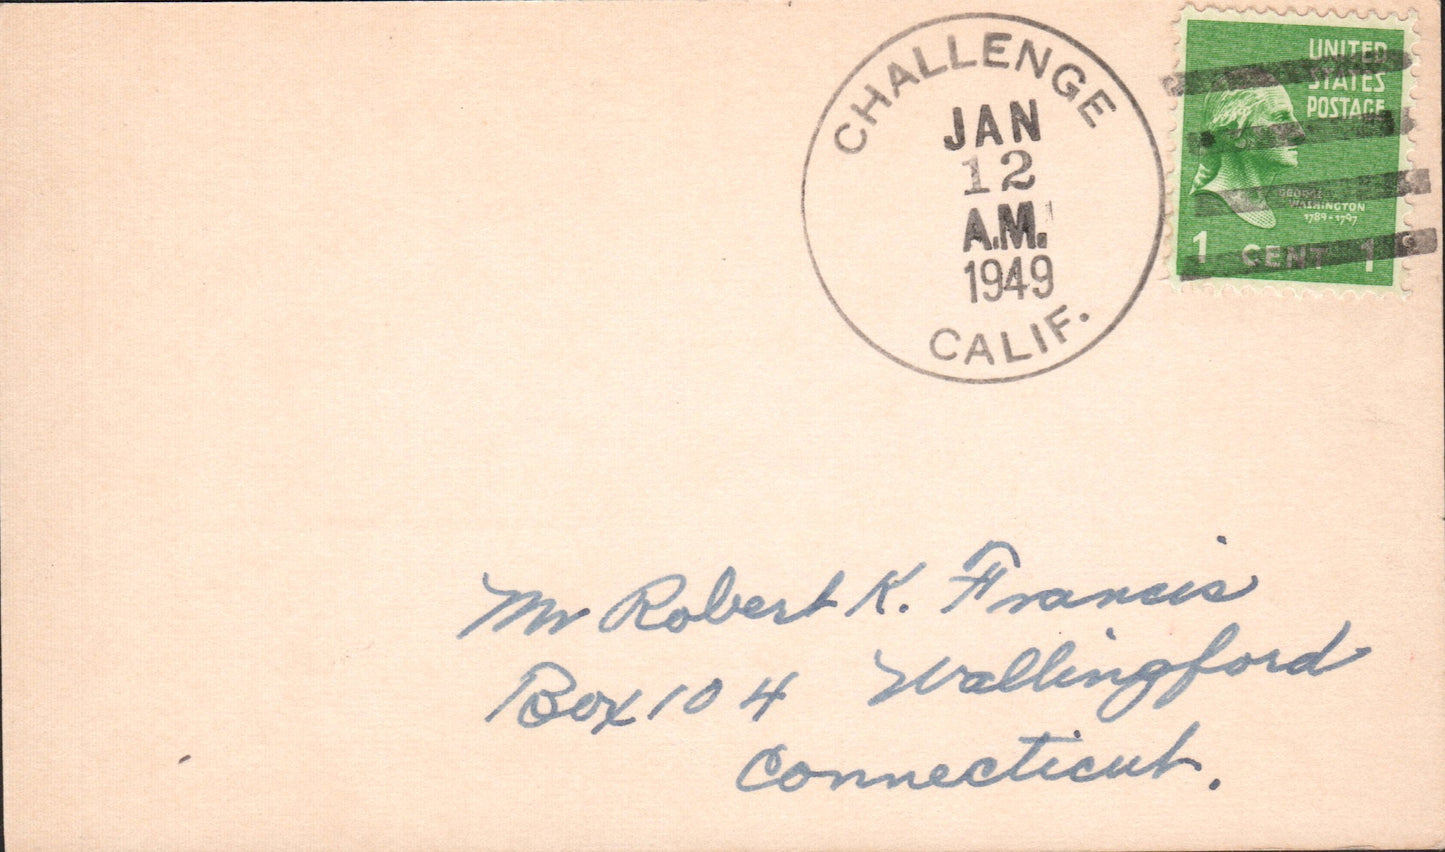 CHALLENGE
JAN
12
A.M.
1949
CALIF.
UNITED
STATES
POSTAGE
GEORGE
WASHINGTON
1789-1797
1 CENT 1
Mr Robert K. Francis
Box 104 Wallingford
Connecticut.